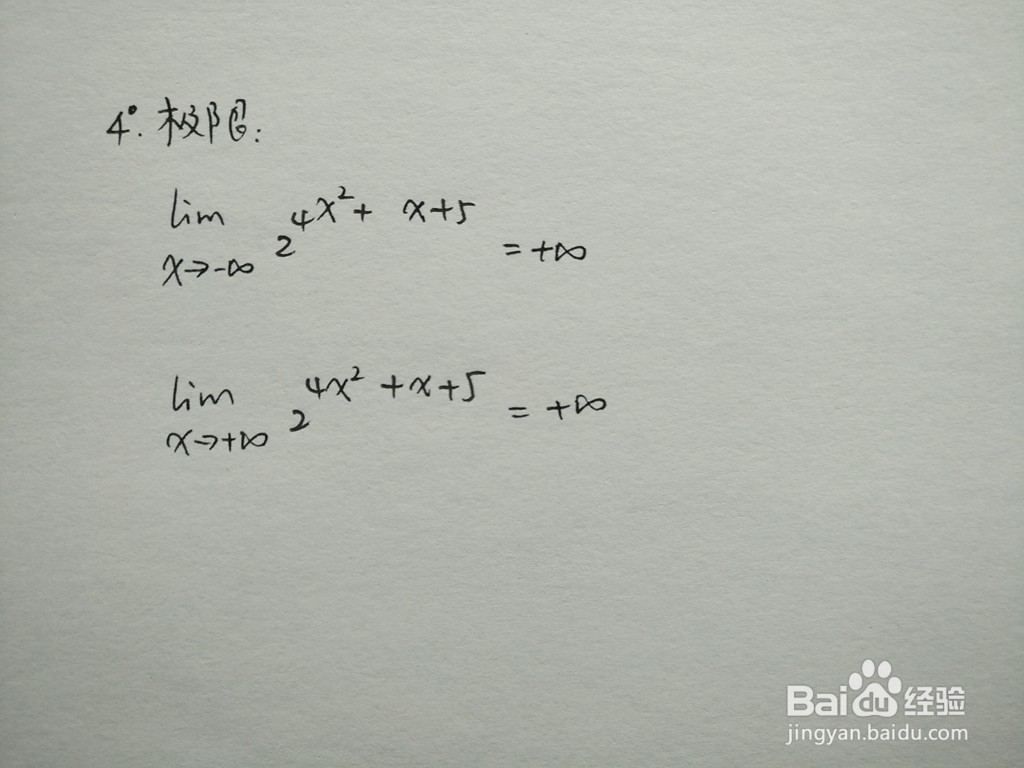 4°. 极限:
lim 2^{4x²+ x+5} = +∞
x→-∞
lim 2^{4x²+x+5} = +∞
x→+∞
Baidu经验
jingyan.baidu.com